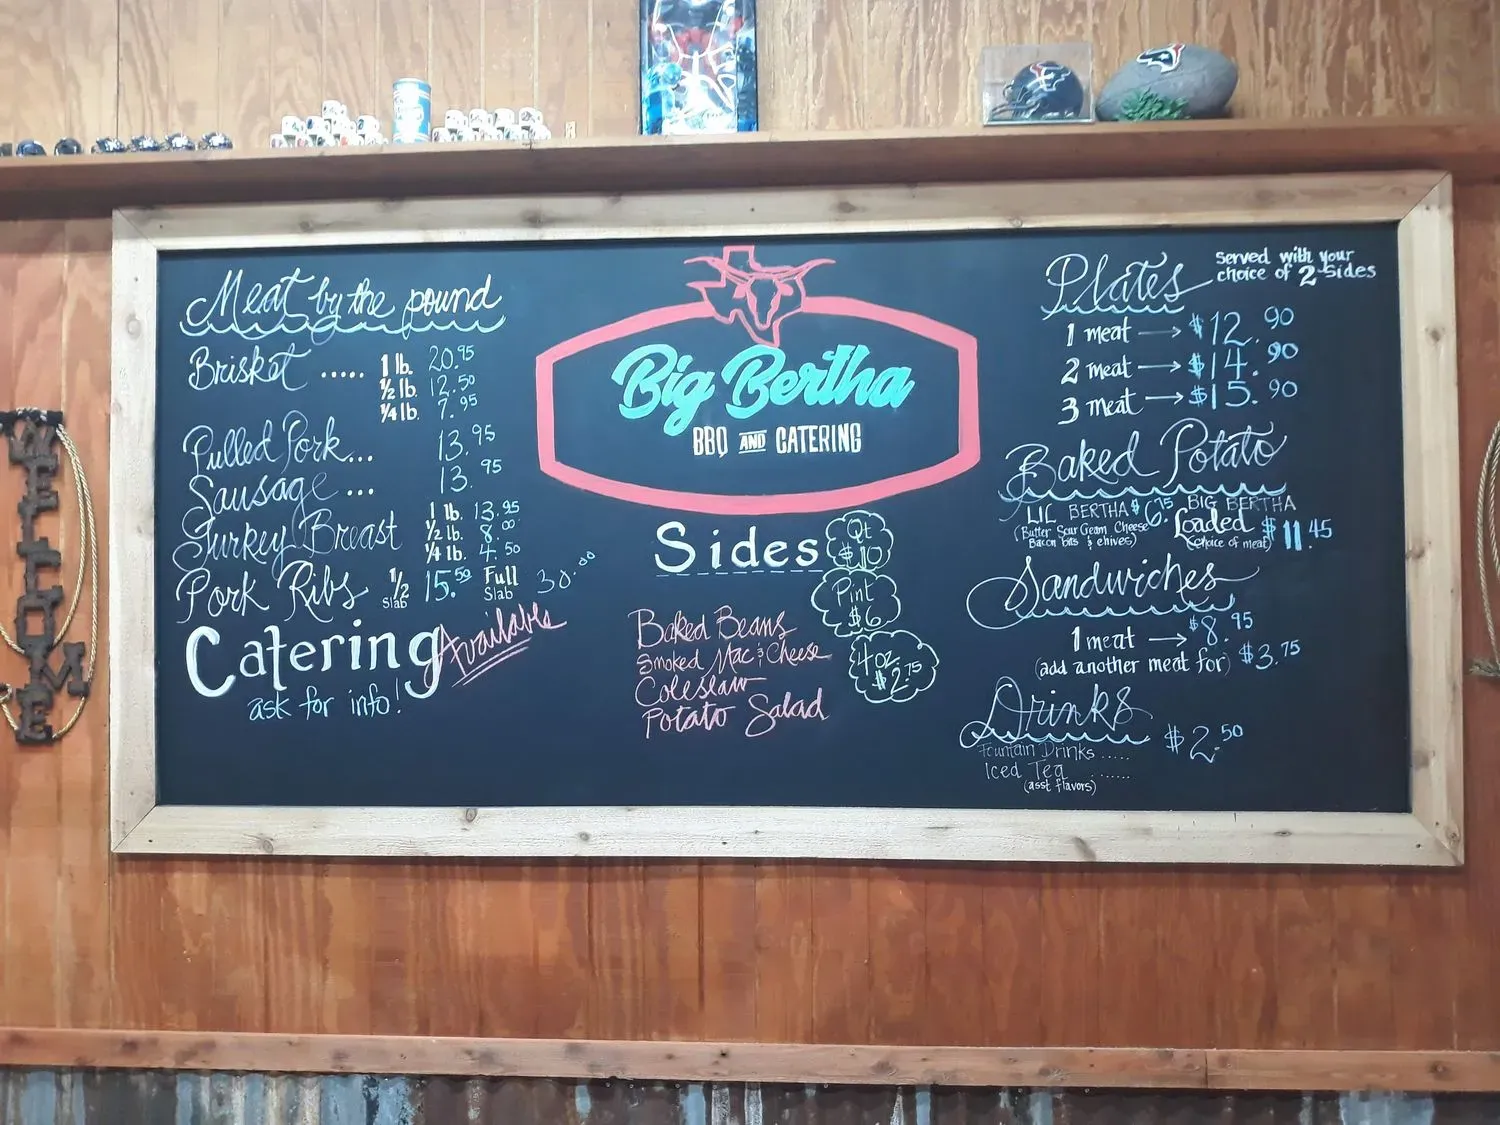 Meat by the pound
Brisket ..... 1 lb. 20.95
½ lb. 12.50
¼ lb. 7.95
Pulled Pork... 13.95
Sausage ... 13.95
Turkey Breast 1 lb. 13.95
½ lb. 8.00
¼ lb. 4.50
Pork Ribs 1/2 Slab 15.50 Full Slab 30.00
Catering Available
ask for info!
Big Bertha
BBQ AND CATERING
Sides
Qt
$10
Pint
$6
4 oz
$2.75
Baked Beans
Smoked Mac & Cheese
Coleslaw
Potato Salad
Plates served with your
choice of 2 sides
1 meat → $12.90
2 meat → $14.90
3 meat → $15.90
Baked Potato
LIL BERTHA $6.75
(Butter Sour Cream Cheese
Bacon bits & chives)
BIG BERTHA
Loaded $11.45
(choice of meat)
Sandwiches
1 meat → $8.95
(add another meat for) $3.75
Drinks $2.50
Fountain Drinks .....
Iced Tea ......
(asst flavors)
WELCOME